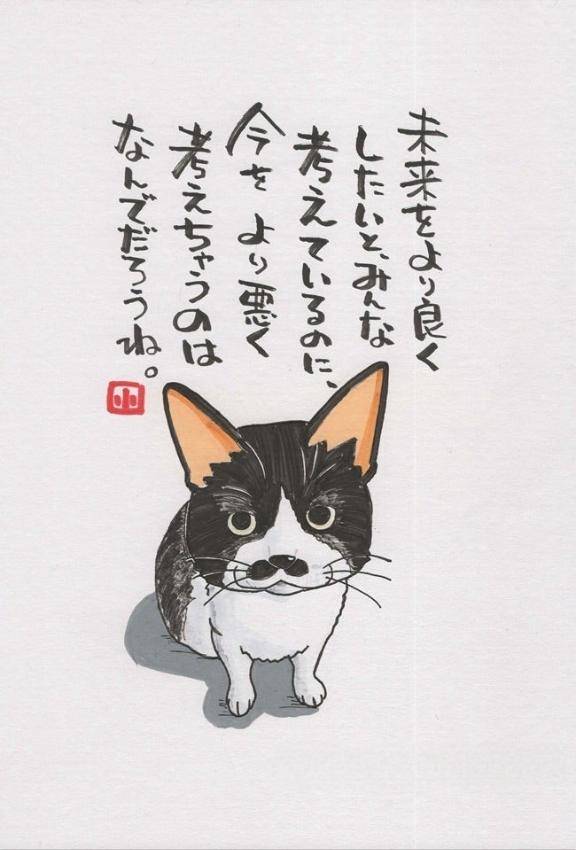 未来をより良く
したいと、みんな
考えているのに、
今をより悪く
考えちゃうのは
なんでだろうね。
小